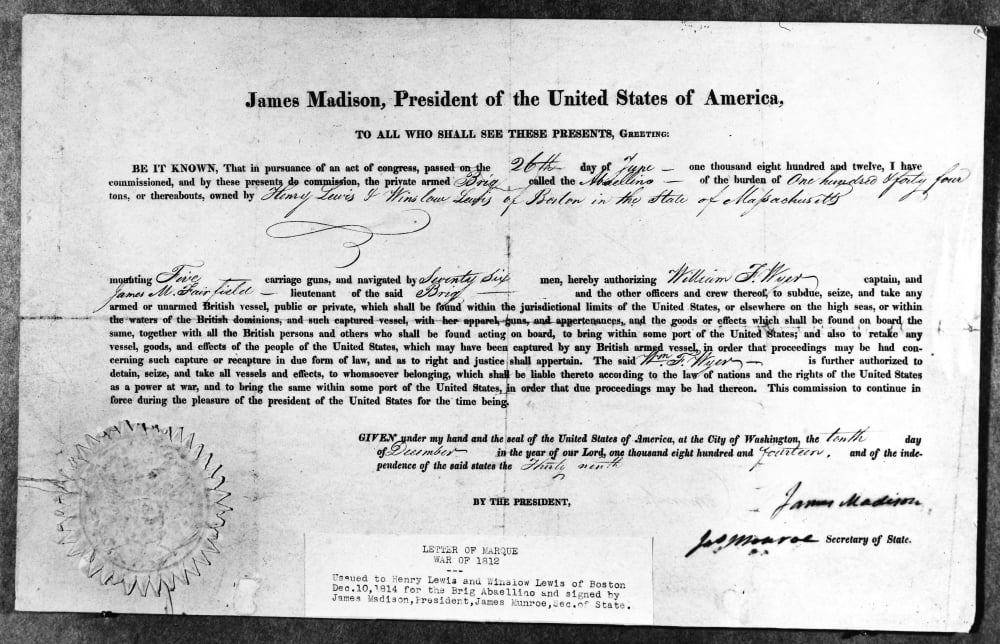 James Madison, President of the United States of America,
TO ALL WHO SHALL SEE THESE PRESENTS, GREETING:
BE IT KNOWN, That in pursuance of an act of congress, passed on the 26th day of June — one thousand eight hundred and twelve, I have
commissioned, and by these presents do commission, the private armed Brig called the Abaellino — of the burden of One hundred & forty four
tons, or thereabouts, owned by Henry Lewis & Winslow Lewis of Boston in the State of Massachusetts
mounting Five carriage guns, and navigated by Seventy Six men, hereby authorizing William F. Wyer captain, and
James M. Fairfield — lieutenant of the said Brig — and the other officers and crew thereof, to subdue, seize, and take any
armed or unarmed British vessel, public or private, which shall be found within the jurisdictional limits of the United States, or elsewhere on the high seas, or within
the waters of the British dominions, and such captured vessel, with her apparel, guns, and appertenances, and the goods or effects which shall be found on board the
same, together with all the British persons and others who shall be found acting on board, to bring within some port of the United States; and also to retake any
vessel, goods, and effects of the people of the United States, which may have been captured by any British armed vessel, in order that proceedings may be had con-
cerning such capture or recapture in due form of law, and as to right and justice shall appertain. The said Wm F. Wyer — is further authorized to
detain, seize, and take all vessels and effects, to whomsoever belonging, which shall be liable thereto according to the law of nations and the rights of the United States
as a power at war, and to bring the same within some port of the United States, in order that due proceedings may be had thereon. This commission to continue in
force during the pleasure of the president of the United States for the time being.
GIVEN under my hand and the seal of the United States of America, at the City of Washington, the tenth day
of December in the year of our Lord, one thousand eight hundred and fourteen, and of the inde-
pendence of the said states the Thirty ninth
BY THE PRESIDENT,
James Madison
Jas Monroe Secretary of State.
LETTER OF MARQUE
WAR OF 1812
---
Ussued to Henry Lewis and Winslow Lewis of Boston
Dec.10,1814 for the Brig Abaellino and signed by
James Madison,President,James Munroe,Sec.of State.